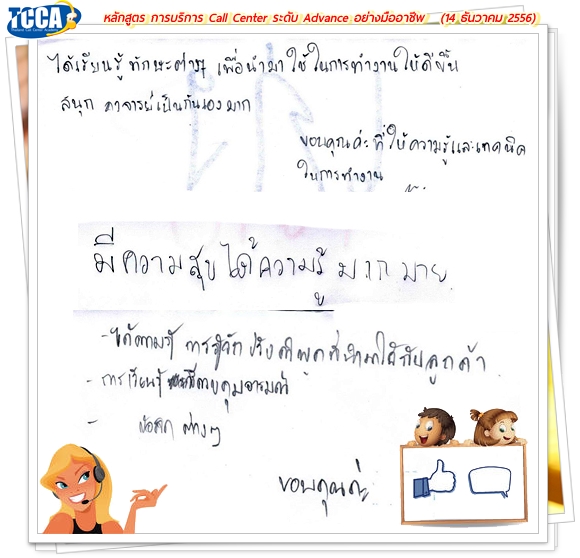 TCCA
Thailand Call Center Academy
หลักสูตร การบริการ Call Center ระดับ Advance อย่างมืออาชีพ (14 ธันวาคม 2556)
ได้เรียนรู้ทักษะต่างๆ เพื่อนำมาใช้ในการทำงานให้ดีขึ้น
สนุก อาจารย์เป็นกันเองมาก
ขอบคุณค่ะที่ให้ความรู้และเทคนิค
ในการทำงาน
มีความสุขได้ความรู้มากมาย
- ได้ความรู้ การรู้จักปรับคำพูดที่นำมาใช้กับลูกค้า
- การเรียนรู้ วิธีควบคุมอารมณ์
- ข้อคิด ต่างๆ
ขอบคุณค่ะ